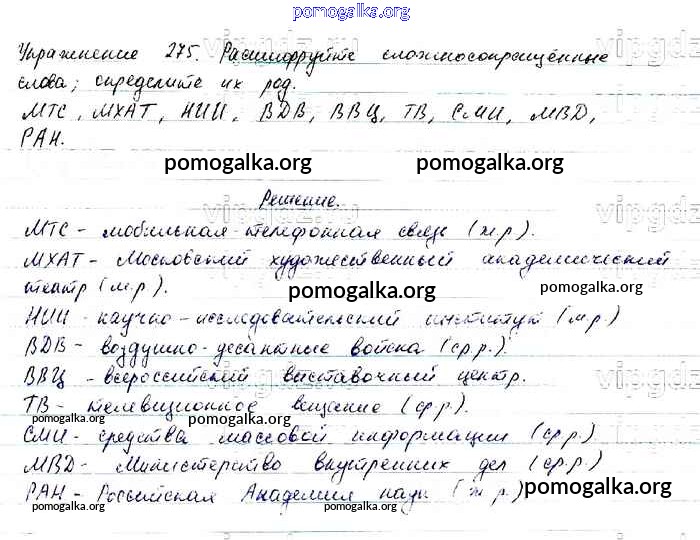 pomogalka.org
Упражнение 275. Расшифруйте сложносокращённые
слова; определите их род.
МТС, МХАТ, НИИ, ВДВ, ВВЦ, ТВ, СМИ, МВД,
РАН.
pomogalka.org pomogalka.org
Решение.
МТС - мобильная телефонная связь (ж.р.).
МХАТ - Московский художественный академический
театр (м.р.).
pomogalka.org pomogalka.org
НИИ - научно-исследовательский институт (м.р.)
ВДВ - воздушно-десантные войска (ср.р.).
ВВЦ - всероссийский выставочный центр.
pomogalka.org
ТВ - телевизионное вещание (ср.р.).
pomogalka.org
СМИ - средства массовой информации (ср.р.)
pomogalka.org
МВД - Министерство внутренних дел (ср.р.)
РАН - Российская Академия наук (ж.р.)
pomogalka.org
pomogalka.org